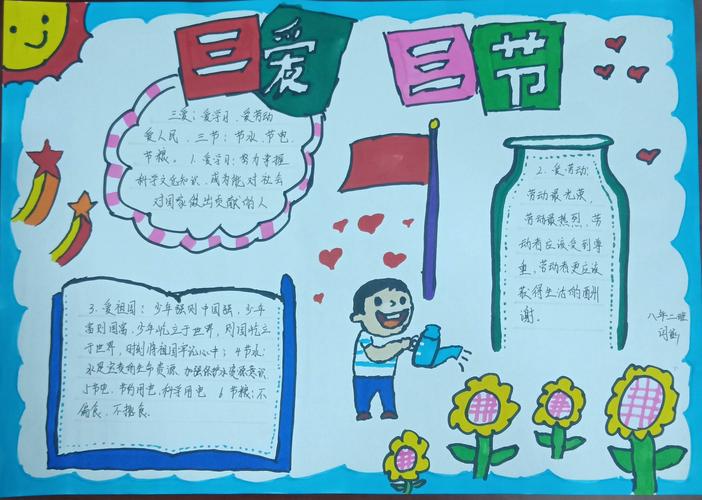 三爱 三节
三爱:爱学习、爱劳动
爱人民、三节:节水、节电
节粮。1.爱学习:努力掌握
科学文化知识、成为能对社会
对国家做出贡献的人
2.爱劳动:
劳动最光荣,
劳动最热烈,劳
动者应该受到尊
重,劳动者更应该
获得生活的酬
谢。
3.爱祖国:少年强则中国强,少年
富则国富,少年屹立于世界,则国屹立
于世界,时刻将祖国牢记心中;4节水:
水是宝贵的生命资源,加强保护水资源意识
5节电,节约用电,科学用电 6节粮:不
偏食、不挑食。
八年二班